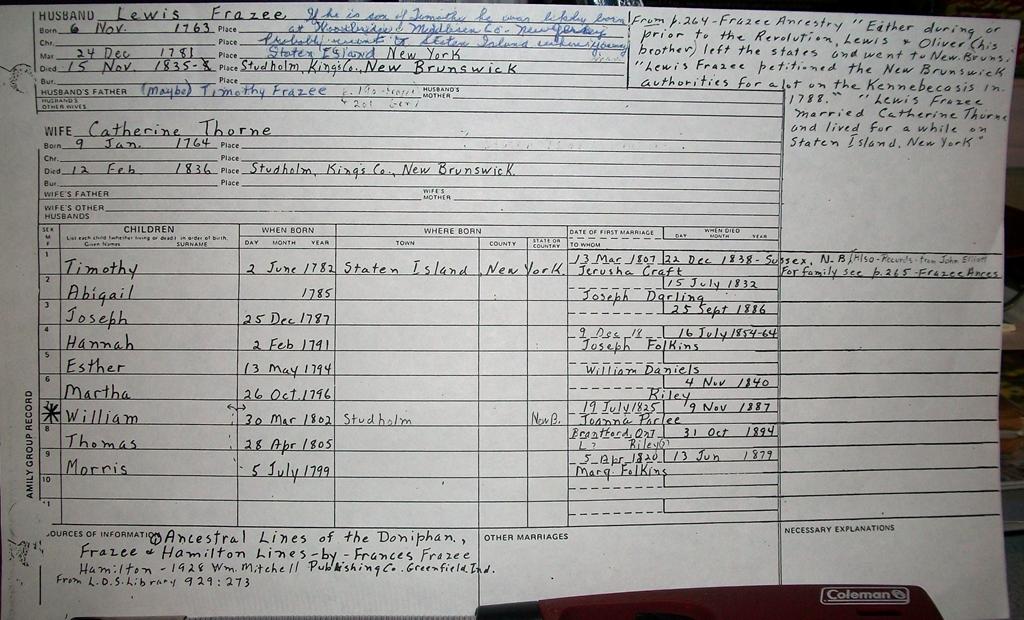 HUSBAND Lewis Frazee, If he is son of Timothy he was likely born
Born 6 Nov. 1763 Place at Woodbridge Middlesex Co. New Jersey
Chr. Place Probably went to Staten Island when young
Mar 24 Dec 1781 Place Staten Island New York
Died 15 Nov. 1835-8 Place Studholm, Kings Co., New Brunswick
Bur. Place
HUSBAND'S FATHER (Maybe) Timothy Frazee HUSBAND'S MOTHER
HUSBAND'S OTHER WIVES
From p.264-Frazee Ancestry "Either during or
prior to the Revolution, Lewis & Oliver (his
brother) left the states and went to New. Bruns.
"Lewis Frazee petitioned the New Brunswick
authorities for a lot on the Kennebecasis in
1788." "Lewis Frazee
married Catherine Thorne
and lived for a while on
Staten Island, New York"
WIFE Catherine Thorne
Born 9 Jan. 1764 Place
Chr. Place
Died 12 Feb 1836 Place Studholm, Kings Co., New Brunswick.
Bur. Place
WIFE'S FATHER WIFE'S MOTHER
WIFE'S OTHER HUSBANDS
SEX M F CHILDREN WHEN BORN WHERE BORN DATE OF FIRST MARRIAGE WHEN DIED
List each child (whether living or dead) in order of birth. Given Names SURNAME DAY MONTH YEAR TOWN COUNTY STATE OR COUNTRY TO WHOM DAY MONTH YEAR
1 Timothy 2 June 1782 Staten Island, New York. 13 Mar 1807 22 Dec 1838-Sussex, N.B. Also-Records-from John Elliott
Jerusha Craft For family see p.265-Frazee Ances
2 Abigail 1785 15 July 1832
Joseph Darling
3 Joseph 25 Dec 1787 25 Sept 1886
4 Hannah 2 Feb 1791 9 Dec 18 16 July 1854-64
Joseph Folkins
5 Esther 13 May 1794
William Daniels
6 Martha 26 Oct. 1796 4 Nov 1840
Riley
7 William 30 Mar 1802 Studholm New B. 19 July 1825 9 Nov 1887
Joanna Parlee
8 Thomas 28 Apr 1805 Brantford, Ont 31 Oct 1894
L? Riley?
9 Morris 5 July 1799 5 Apr 1820 13 Jun 1879
Marg. Folkins
10
11
AMILY GROUP RECORD
OURCES OF INFORMATION Ancestral Lines of the Doniphan,
Frazee & Hamilton Lines-by-Frances Frazee
Hamilton-1928 Wm. Mitchell Publishing Co. Greenfield, Ind.
From L.D.S. Library 929:273
OTHER MARRIAGES
NECESSARY EXPLANATIONS
Coleman